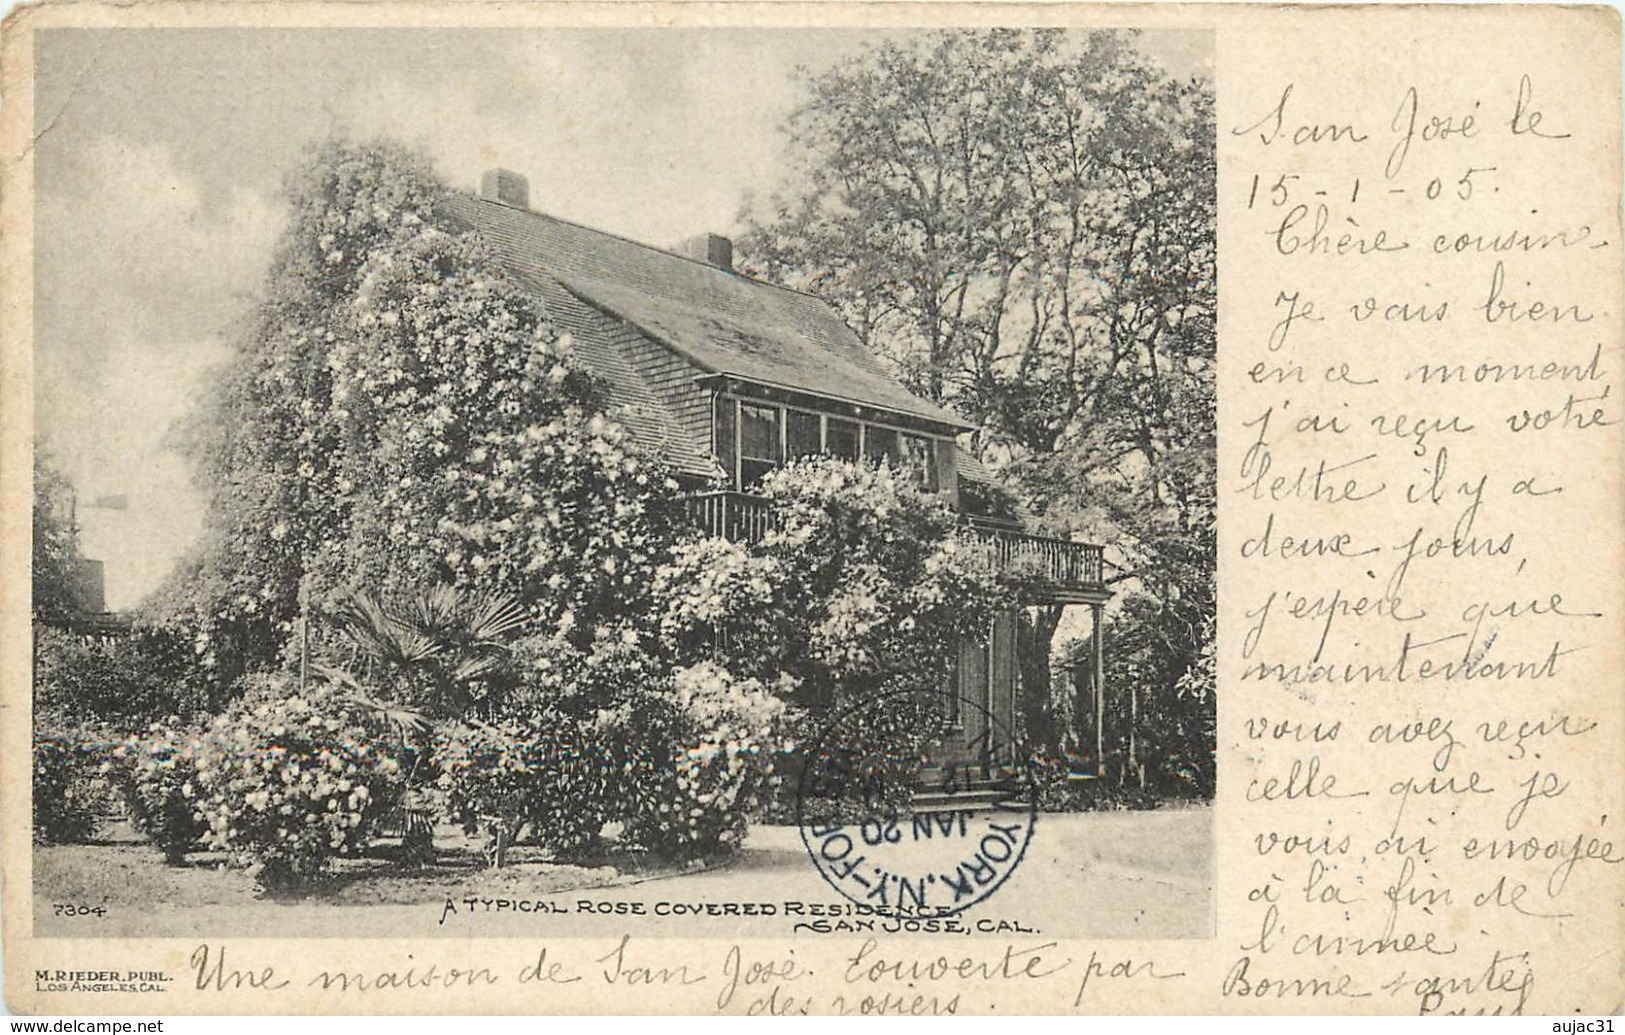 San José le
15-1-05.
Chère cousine
Je vais bien
en ce moment,
j'ai reçu votre
lettre il y a
deux jours,
j'espère que
maintenant
vous avez reçu
celle que je
vous ai envoyée
à la fin de
l'année.
Bonne santé
Paul.
7304
A TYPICAL ROSE COVERED RESIDENCE,
SAN JOSE, CAL.
NEW YORK, N.Y.
JAN 20
M. RIEDER, PUBL.
LOS ANGELES, CAL.
Une maison de San José. Couverte par
des rosiers.
www.delcampe.net
aujac31